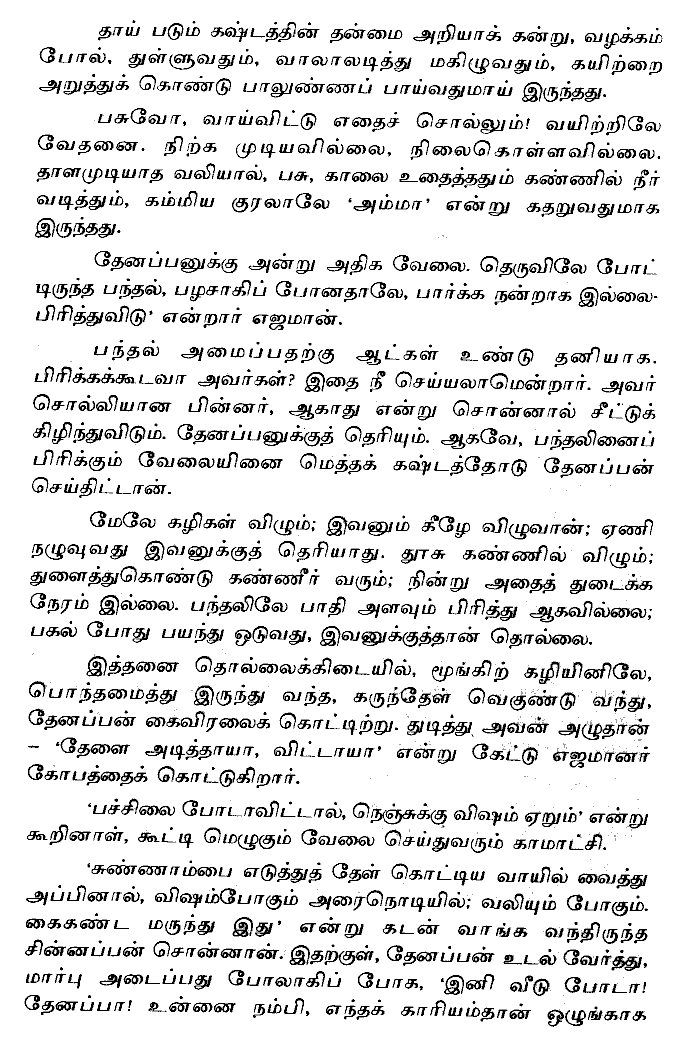 தாய் படும் கஷ்டத்தின் தன்மை அறியாக் கன்று, வழக்கம்
போல், துள்ளுவதும், வாலாலடித்து மகிழுவதும், கயிற்றை
அறுத்துக் கொண்டு பாலுண்ணப் பாய்வதுமாய் இருந்தது.
பசுவோ, வாய்விட்டு எதைச் சொல்லும்! வயிற்றிலே
வேதனை. நிற்க முடியவில்லை, நிலைகொள்ளவில்லை.
தாளமுடியாத வலியால், பசு, காலை உதைத்ததும் கண்ணில் நீர்
வடித்தும், கம்மிய குரலாலே ‘அம்மா’ என்று கதறுவதுமாக
இருந்தது.
தேனப்பனுக்கு அன்று அதிக வேலை. தெருவிலே போட்
டிருந்த பந்தல், பழசாகிப் போனதாலே, பார்க்க நன்றாக இல்லை-
பிரித்துவிடு’ என்றார் எஜமான்.
பந்தல் அமைப்பதற்கு ஆட்கள் உண்டு தனியாக.
பிரிக்கக்கூடவா அவர்கள்? இதை நீ செய்யலாமென்றார். அவர்
சொல்லியான பின்னர், ஆகாது என்று சொன்னால் சீட்டுக்
கிழிந்துவிடும். தேனப்பனுக்குத் தெரியும். ஆகவே, பந்தலினைப்
பிரிக்கும் வேலையினை மெத்தக் கஷ்டத்தோடு தேனப்பன்
செய்திட்டான்.
மேலே கழிகள் விழும்; இவனும் கீழே விழுவான்; ஏணி
நழுவுவது இவனுக்குத் தெரியாது. தூசு கண்ணில் விழும்;
துளைத்துகொண்டு கண்ணீர் வரும்; நின்று அதைத் துடைக்க
நேரம் இல்லை. பந்தலிலே பாதி அளவும் பிரித்து ஆகவில்லை;
பகல் போது பயந்து ஒடுவது, இவனுக்குத்தான் தொல்லை.
இத்தனை தொல்லைக்கிடையில், மூங்கிற் கழியினிலே,
பொந்தமைத்து இருந்து வந்த, கருந்தேள் வெகுண்டு வந்து,
தேனப்பன் கைவிரலைக் கொட்டிற்று. துடித்து அவன் அழுதான்
– ‘தேளை அடித்தாயா, விட்டாயா’ என்று கேட்டு எஜமானர்
கோபத்தைக் கொட்டுகிறார்.
‘பச்சிலை போடாவிட்டால், நெஞ்சுக்கு விஷம் ஏறும்’ என்று
கூறினாள், கூட்டி மெழுகும் வேலை செய்துவரும் காமாட்சி.
‘சுண்ணாம்பை எடுத்துத் தேள் கொட்டிய வாயில் வைத்து
அப்பினால், விஷம்போகும் அரைநொடியில்; வலியும் போகும்.
கைகண்ட மருந்து இது’ என்று கடன் வாங்க வந்திருந்த
சின்னப்பன் சொன்னான். இதற்குள், தேனப்பன் உடல் வேர்த்து,
மார்பு அடைப்பது போலாகிப் போக, ‘இனி வீடு போடா!
தேனப்பா! உன்னை நம்பி, எந்தக் காரியம்தான் ஒழுங்காக